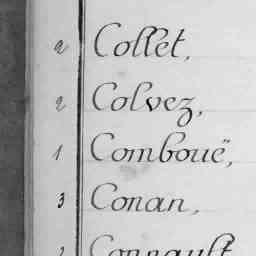 2 Collet,
2 Colvez,
1 Combouë,
3 Conan,
2 Connault